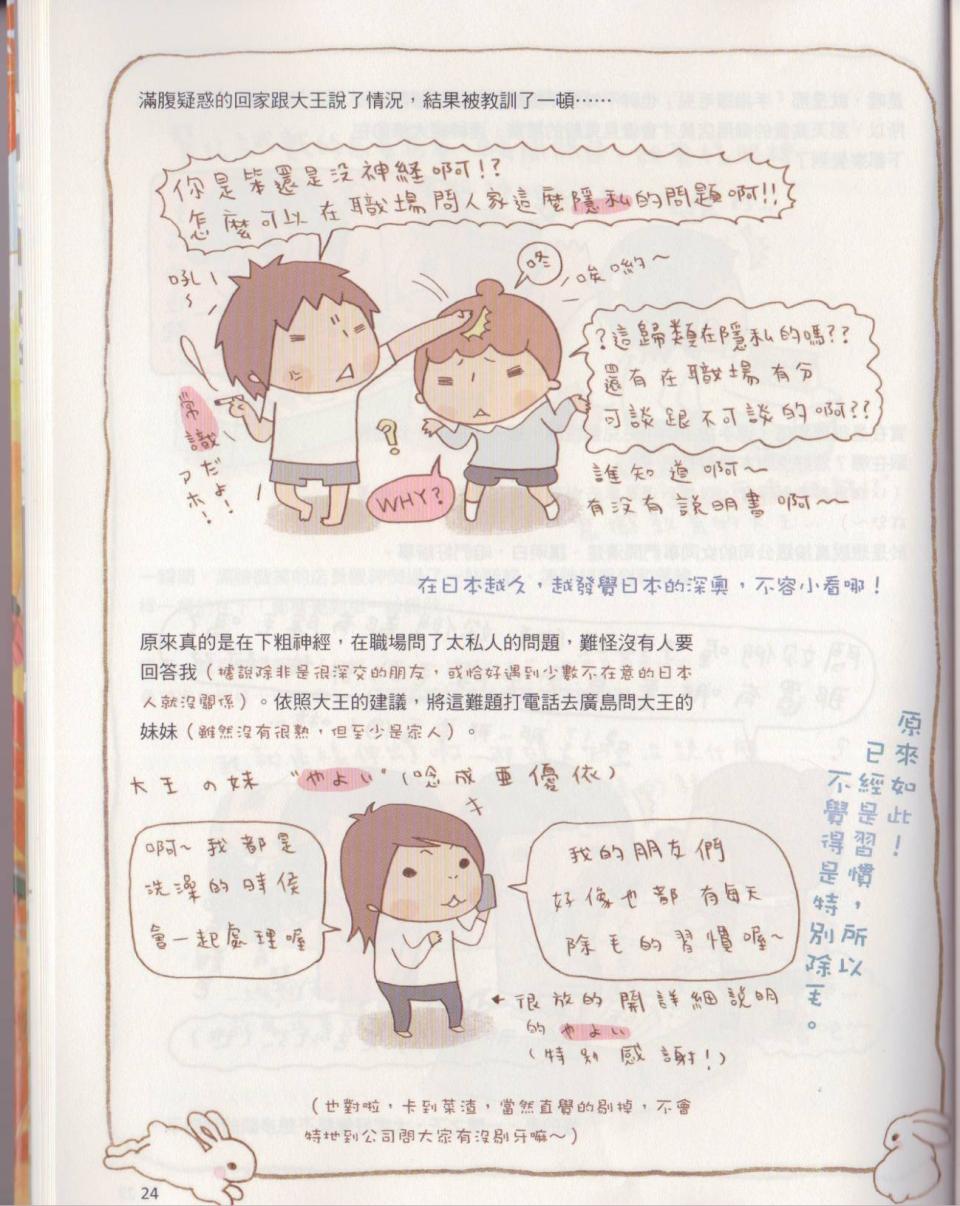 滿腹疑惑的回家跟大王說了情況，結果被教訓了一頓……
你是笨還是沒神経啊!?
怎麼可以在職場問人家這麼隱私的問題啊!!
吼~
咚
唉喲~
?這歸類在隱私的嗎??
還有在職場有分
可談跟不可談的啊??
常識だよ!
アホ!
?
WHY?
誰知道啊~
有沒有說明書啊~~
在日本越久，越發覺日本的深奧，不容小看哪！
原來真的是在下粗神經，在職場問了太私人的問題，難怪沒有人要
回答我（據說除非是很深交的朋友，或恰好遇到少數不在意的日本
人就沒關係）。依照大王的建議，將這難題打電話去廣島問大王的
妹妹（雖然沒有很熟，但至少是家人）。
大王の妹 "やよい"(唸成亜優依)
啊~我都是
洗澡的時侯
會一起處理喔
我的朋友們
好像也都有每天
除毛的習慣喔~
原來如此！
已經是習慣，所以
不覺得是特別除毛。
很放的開詳細說明
的やよい
(特別感謝!)
（也對啦，卡到菜渣，當然直覺的剔掉，不會
特地到公司問大家有沒剔牙嘛~）
24